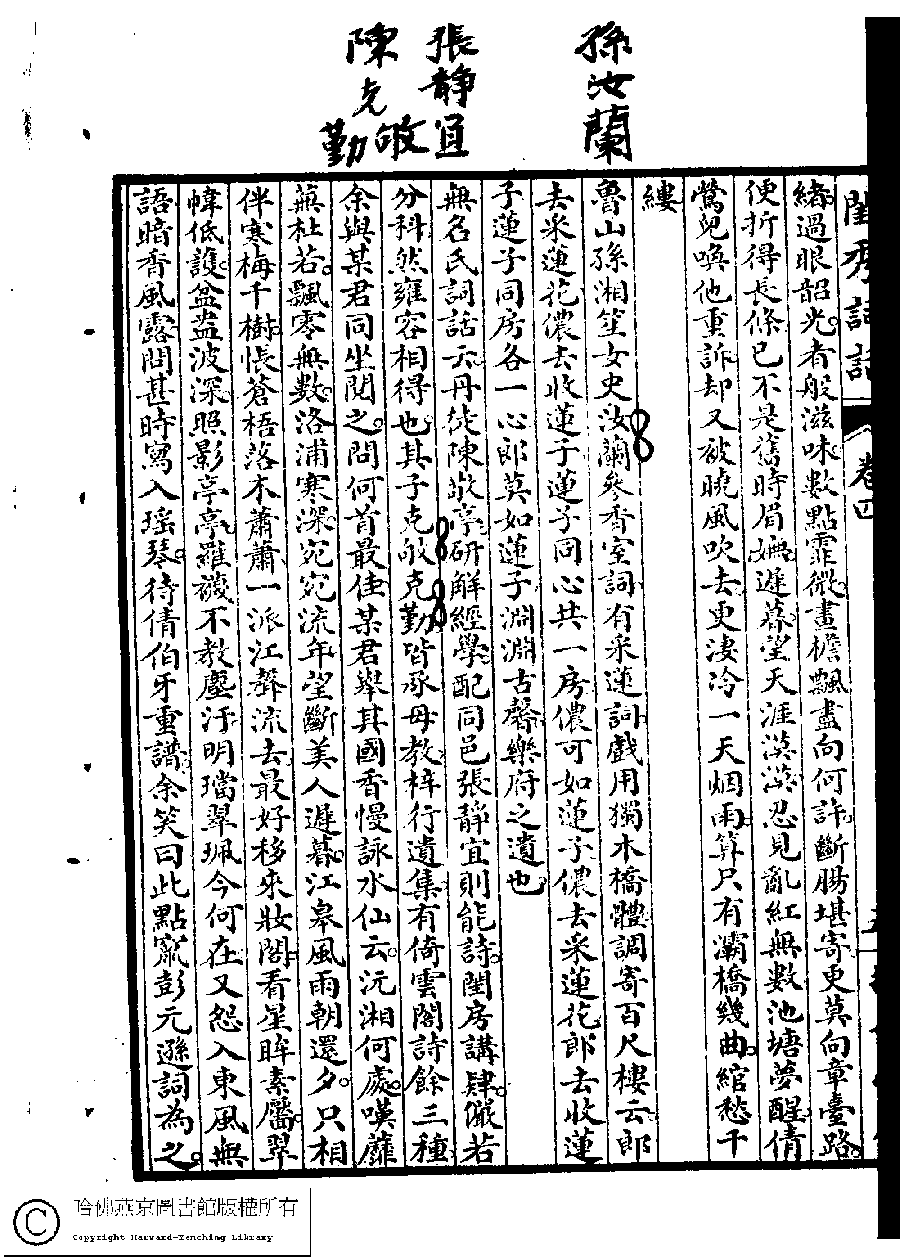 孫汝蘭
張静宜
陳克敬
勤
閨秀詞話 卷四
緒過眼韶光者般滋味數點霏微畫檐飄盡向何許斷腸堪寄更莫向章臺路
便折得長條已不是舊時眉嫵遲暮望天涯漠漠忍見亂紅無數池塘夢醒倩
鶯兒喚他重訴却又被曉風吹去更淒冷一天烟雨算只有灞橋幾曲綰愁千
縷
魯山孫湘笙女史汝蘭參香室詞有采蓮詞戲用獨木橋體調寄百尺樓云郎
去采蓮花儂去收蓮子蓮子同心共一房儂可如蓮子儂去采蓮花郎去收蓮
子蓮子同房各一心郎莫如蓮子淵淵古馨樂府之遺也
無名氏詞話云丹徒陳敬亭研解經學配同邑張靜宜則能詩閨房講肄儼若
分科然雍容相得也其子克敬克勤皆承母教梓行遺集有倚雲閣詩餘三種
余與某君同坐閱之問何首最佳某君舉其國香慢詠水仙云沅湘何處嘆蘼
蕪杜若飄零無數洛浦寒深宛宛流年望斷美人遲暮江皋風雨朝還夕只相
伴寒梅千樹悵蒼梧落木蕭蕭一派江聲流去最好移來妝閣看星眸素靨翠
幃低護盆盎波深照影亭亭羅襪不教塵汙明璫翠珮今何在又怨入東風無
語暗香風露問甚時寫入瑤琴待倩伯牙重譜余笑曰此點竄彭元遜詞為之
哈佛燕京圖書館版權所有
Copyright Harvard-Yenching Library